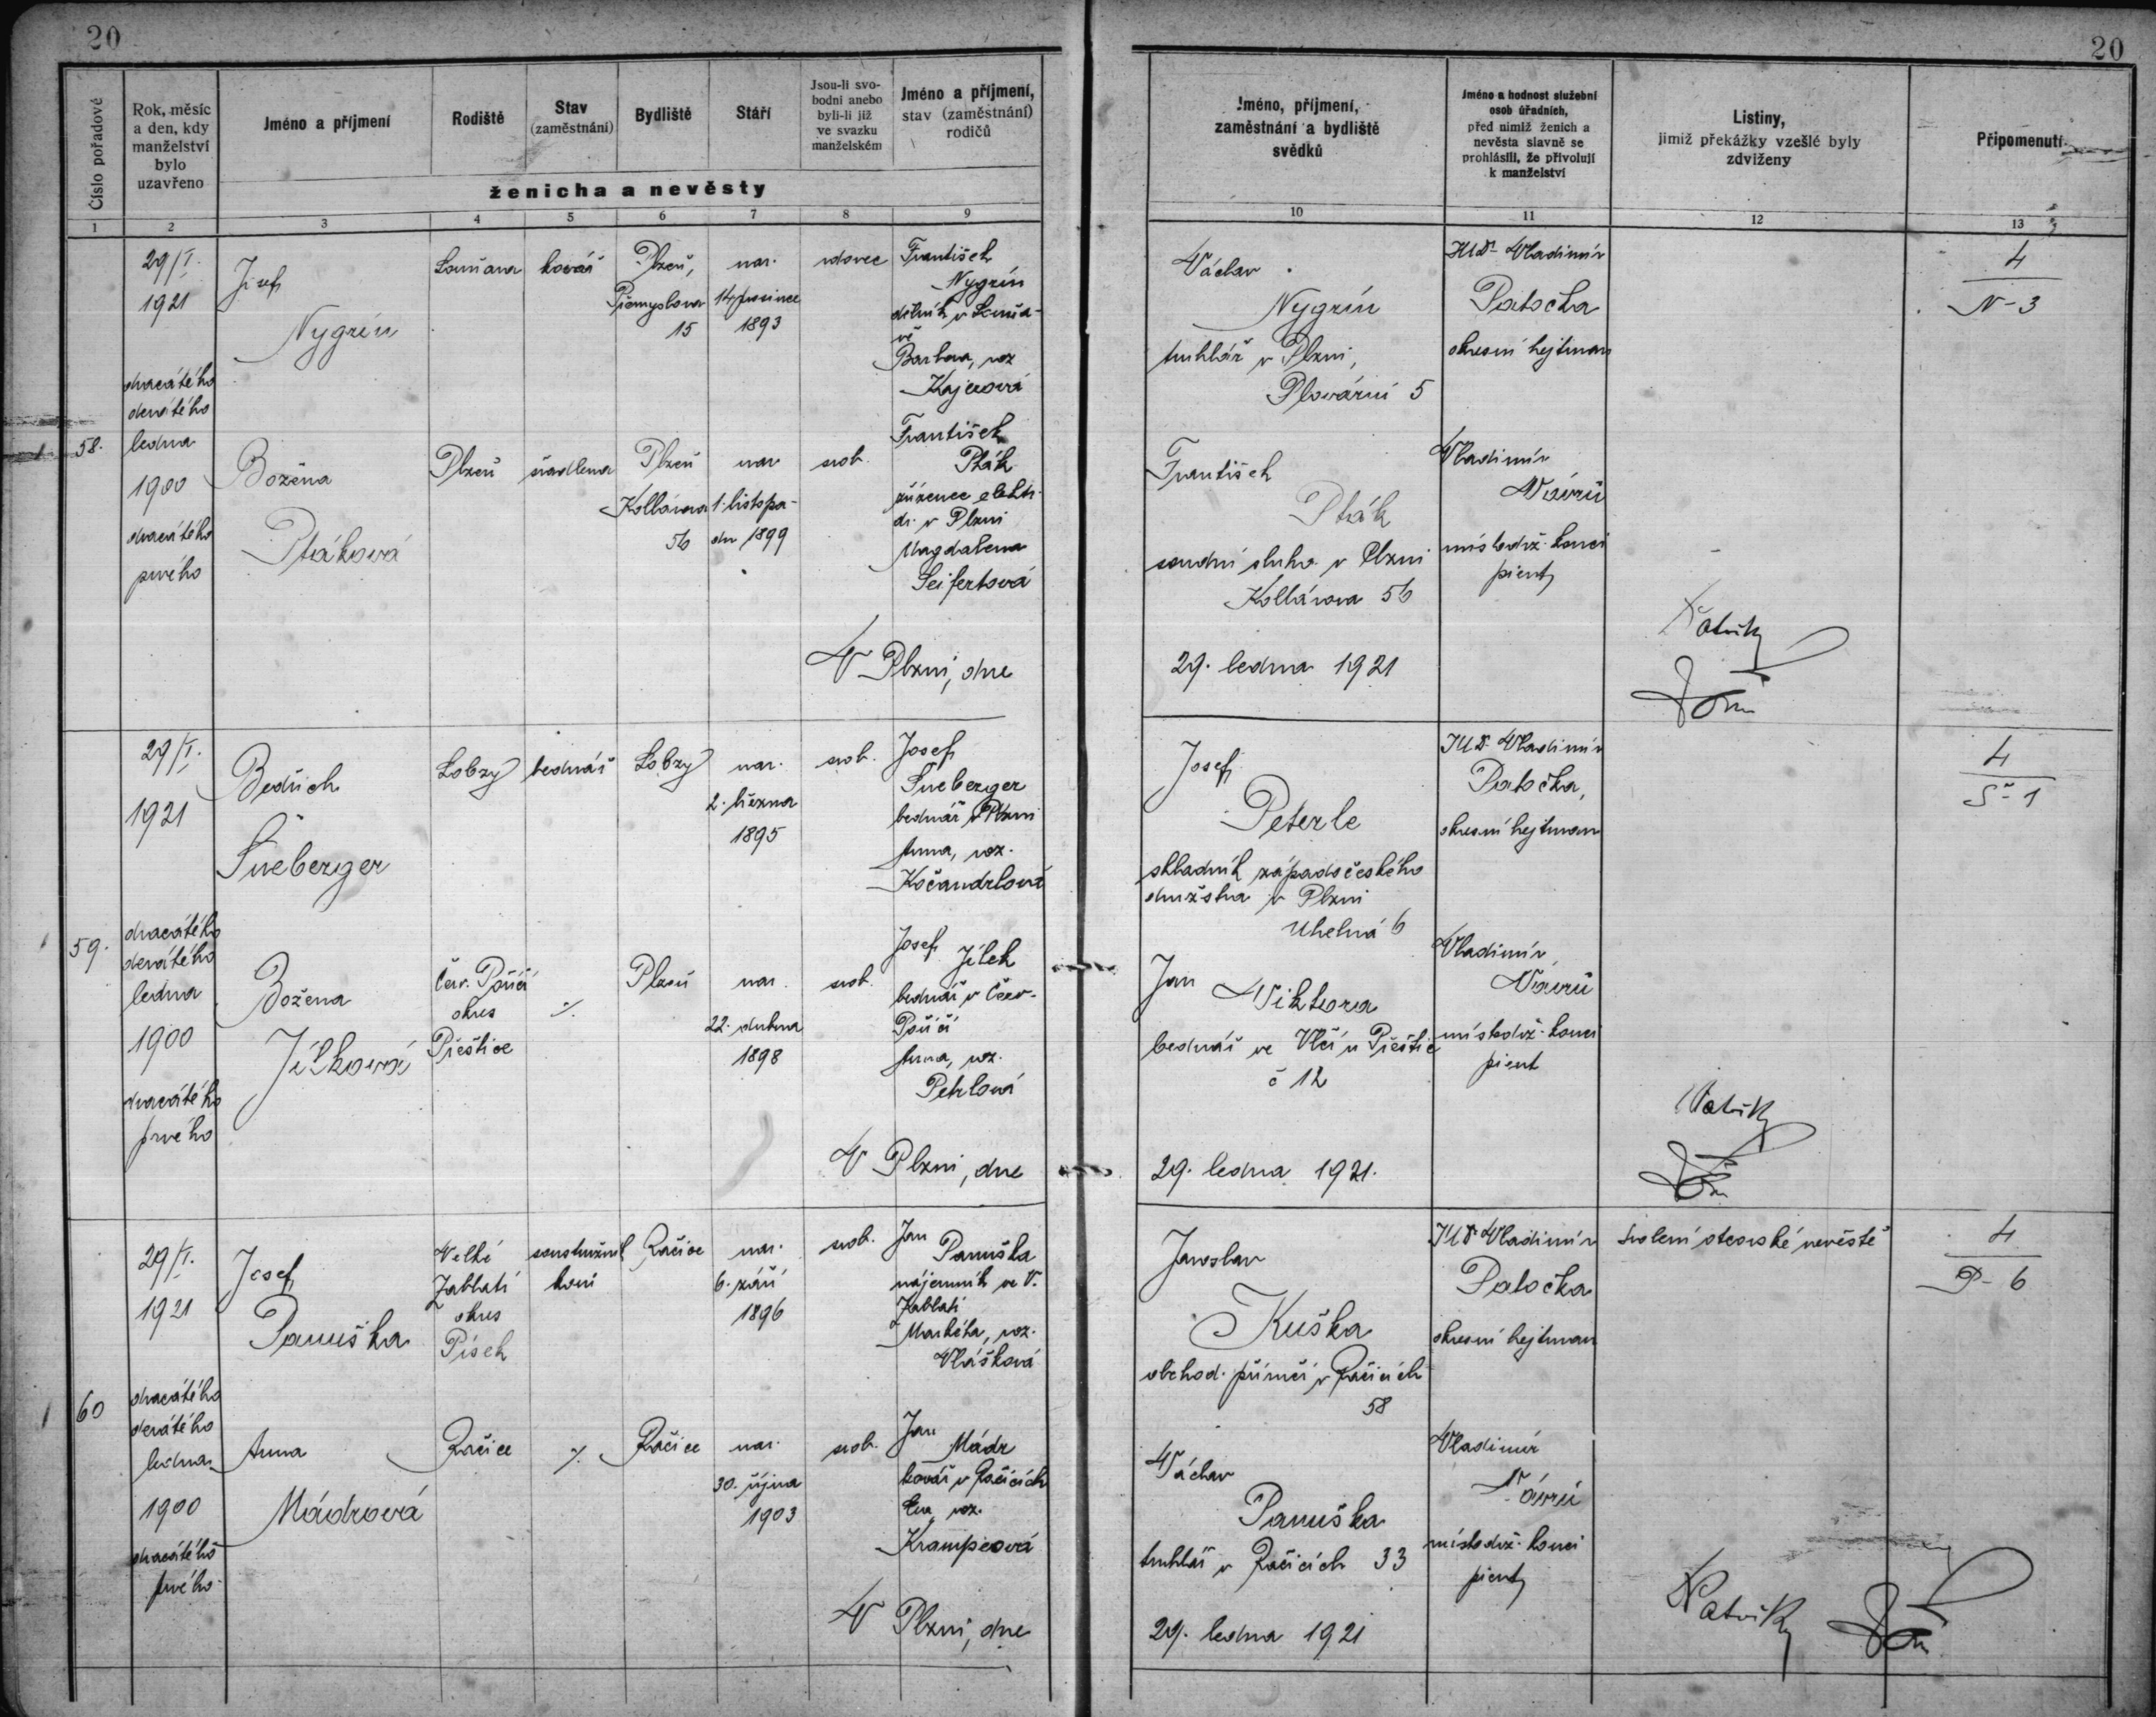 20
20
Číslo pořadové
Rok, měsíc
a den, kdy
manželství
bylo
uzavřeno
Jméno a příjmení
Rodiště
Stav
(zaměstnání)
Bydliště
Stáří
Jsou-li svo-
bodni anebo
byli-li již
ve svazku
manželském
Jméno a příjmení,
stav (zaměstnání)
rodičů
ženicha a nevěsty
Jméno, příjmení,
zaměstnání a bydliště
svědků
Jméno a hodnost služební
osob úřadních,
před nimiž ženich a
nevěsta slavně se
prohlásili, že přivolují
k manželství
Listiny,
jimiž překážky vzešlé byly
zdviženy
Připomenutí
1
2
3
4
5
6
7
8
9
10
11
12
13
58.
29/I.
1921
dvacátého
devátého
ledna
1900
dvacátého
prvého
Josef
Nygrín
kovář
Plzeň,
Přemyslova
15
nar.
14 prosince
1893
vdovec
František
Nygrín
dělník v
Barbora, roz
Václav
Nygrín
truhlář v Plzni,
Plovární 5
JUDr Vladimír
Patočka
okresní hejtman
4
N-3
Božena
Ptáková
Plzeň
švadlena
Plzeň
Kollárova
56
nar
1. listopa-
du 1899
svob.
František
Pták
zřízenec elektr.
dr. v Plzni
Magdalena
Seifertová
František
Pták
soudní sluha v Plzni
Kollárova 56
Vladimír
Návrů
místodrž. konci
pient
V Plzni, dne
29. ledna 1921
59.
29/I.
1921
dvacátého
devátého
ledna
1900
dvacátého
prvého
Bedřich
Šneberger
Lobzy
bednář
Lobzy
nar.
2. března
1895
svob.
Josef
Šneberger
bednář v Plzni
Anna, roz.
Kočandrlová
Josef
Peterle
skladník západočeského
družstva v Plzni
Uhelná 6
JUDr Vladimír
Patočka,
okresní hejtman
4
Š-1
Božena
Jílková
Červ. Poříčí
okres
Přeštice
%
Plzeň
nar.
22. dubna
1898
svob.
Josef Jílek
bednář v Červ.
Poříčí
Anna, roz.
Jan
Viktora
bednář ve Vlčí u Přeštic
č 12
Vladimír
Návrů
místodrž. konci
pient
V Plzni, dne
29. ledna 1921.
60
29/I.
1921
dvacátého
devátého
ledna
1900
dvacátého
prvého
Josef
Panuška
Velké
Záblatí
okres
Písek
soustružník
kovů
Račice
nar.
6. září
1896
svob.
Jan
Panuška
nájemník ve V.
Záblatí
Markéta, roz.
Vlášková
Jaroslav
Kuška
obchod. příručí v Račicích
58
JUDr Vladimír
Patočka
okresní hejtman
svolení otcovské nevěstě
4
P-6
Anna
Mádrová
Račice
%
Račice
nar.
30. října
1903
svob.
Jan
Mádr
kovář v Račicích
Eva, roz.
Václav
Panuška
truhlář v Račicích 33
Vladimír
Návrů
místodrž. konci
pient
V Plzni, dne
29. ledna 1921